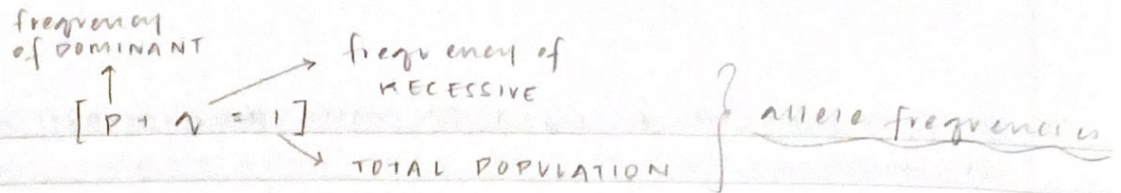 frequency
of DOMINANT
frequency of
RECESSIVE
[p + q = 1]
TOTAL POPULATION
allele frequencies